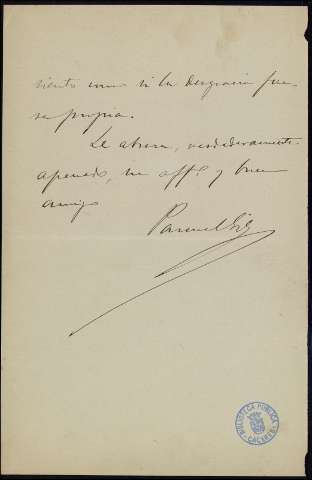 siento como si la desgracia fue-
se propia.
Le abraza, verdaderamente
apenado, su afft.º y buen
amigo
BIBLIOTECA PUBLICA
CACERES